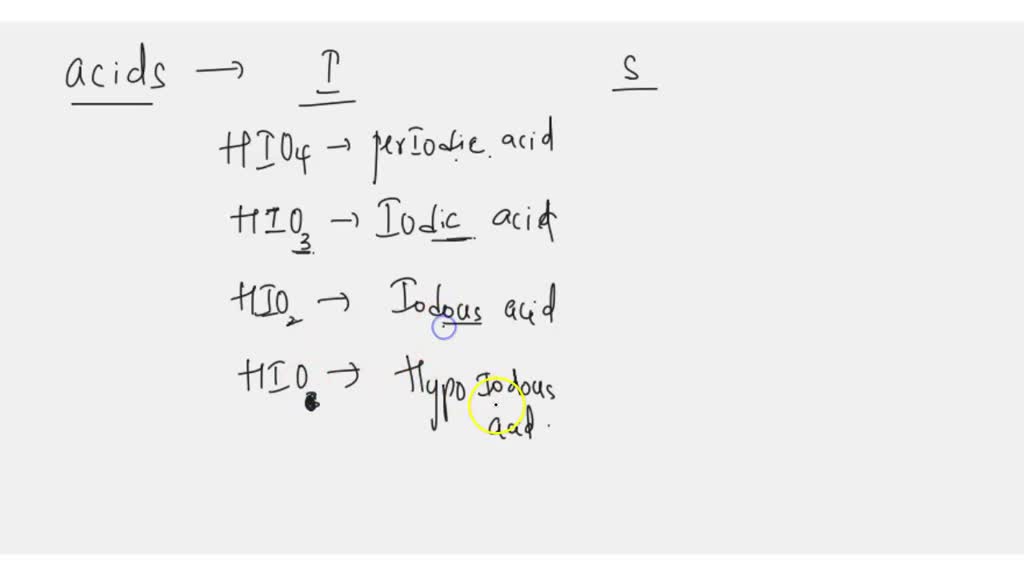 acids → I S
HIO4 → perIodic acid
HIO3 → Iodic acid
HIO2 → Iodous acid
HIO → Hypo Iodous
acid.